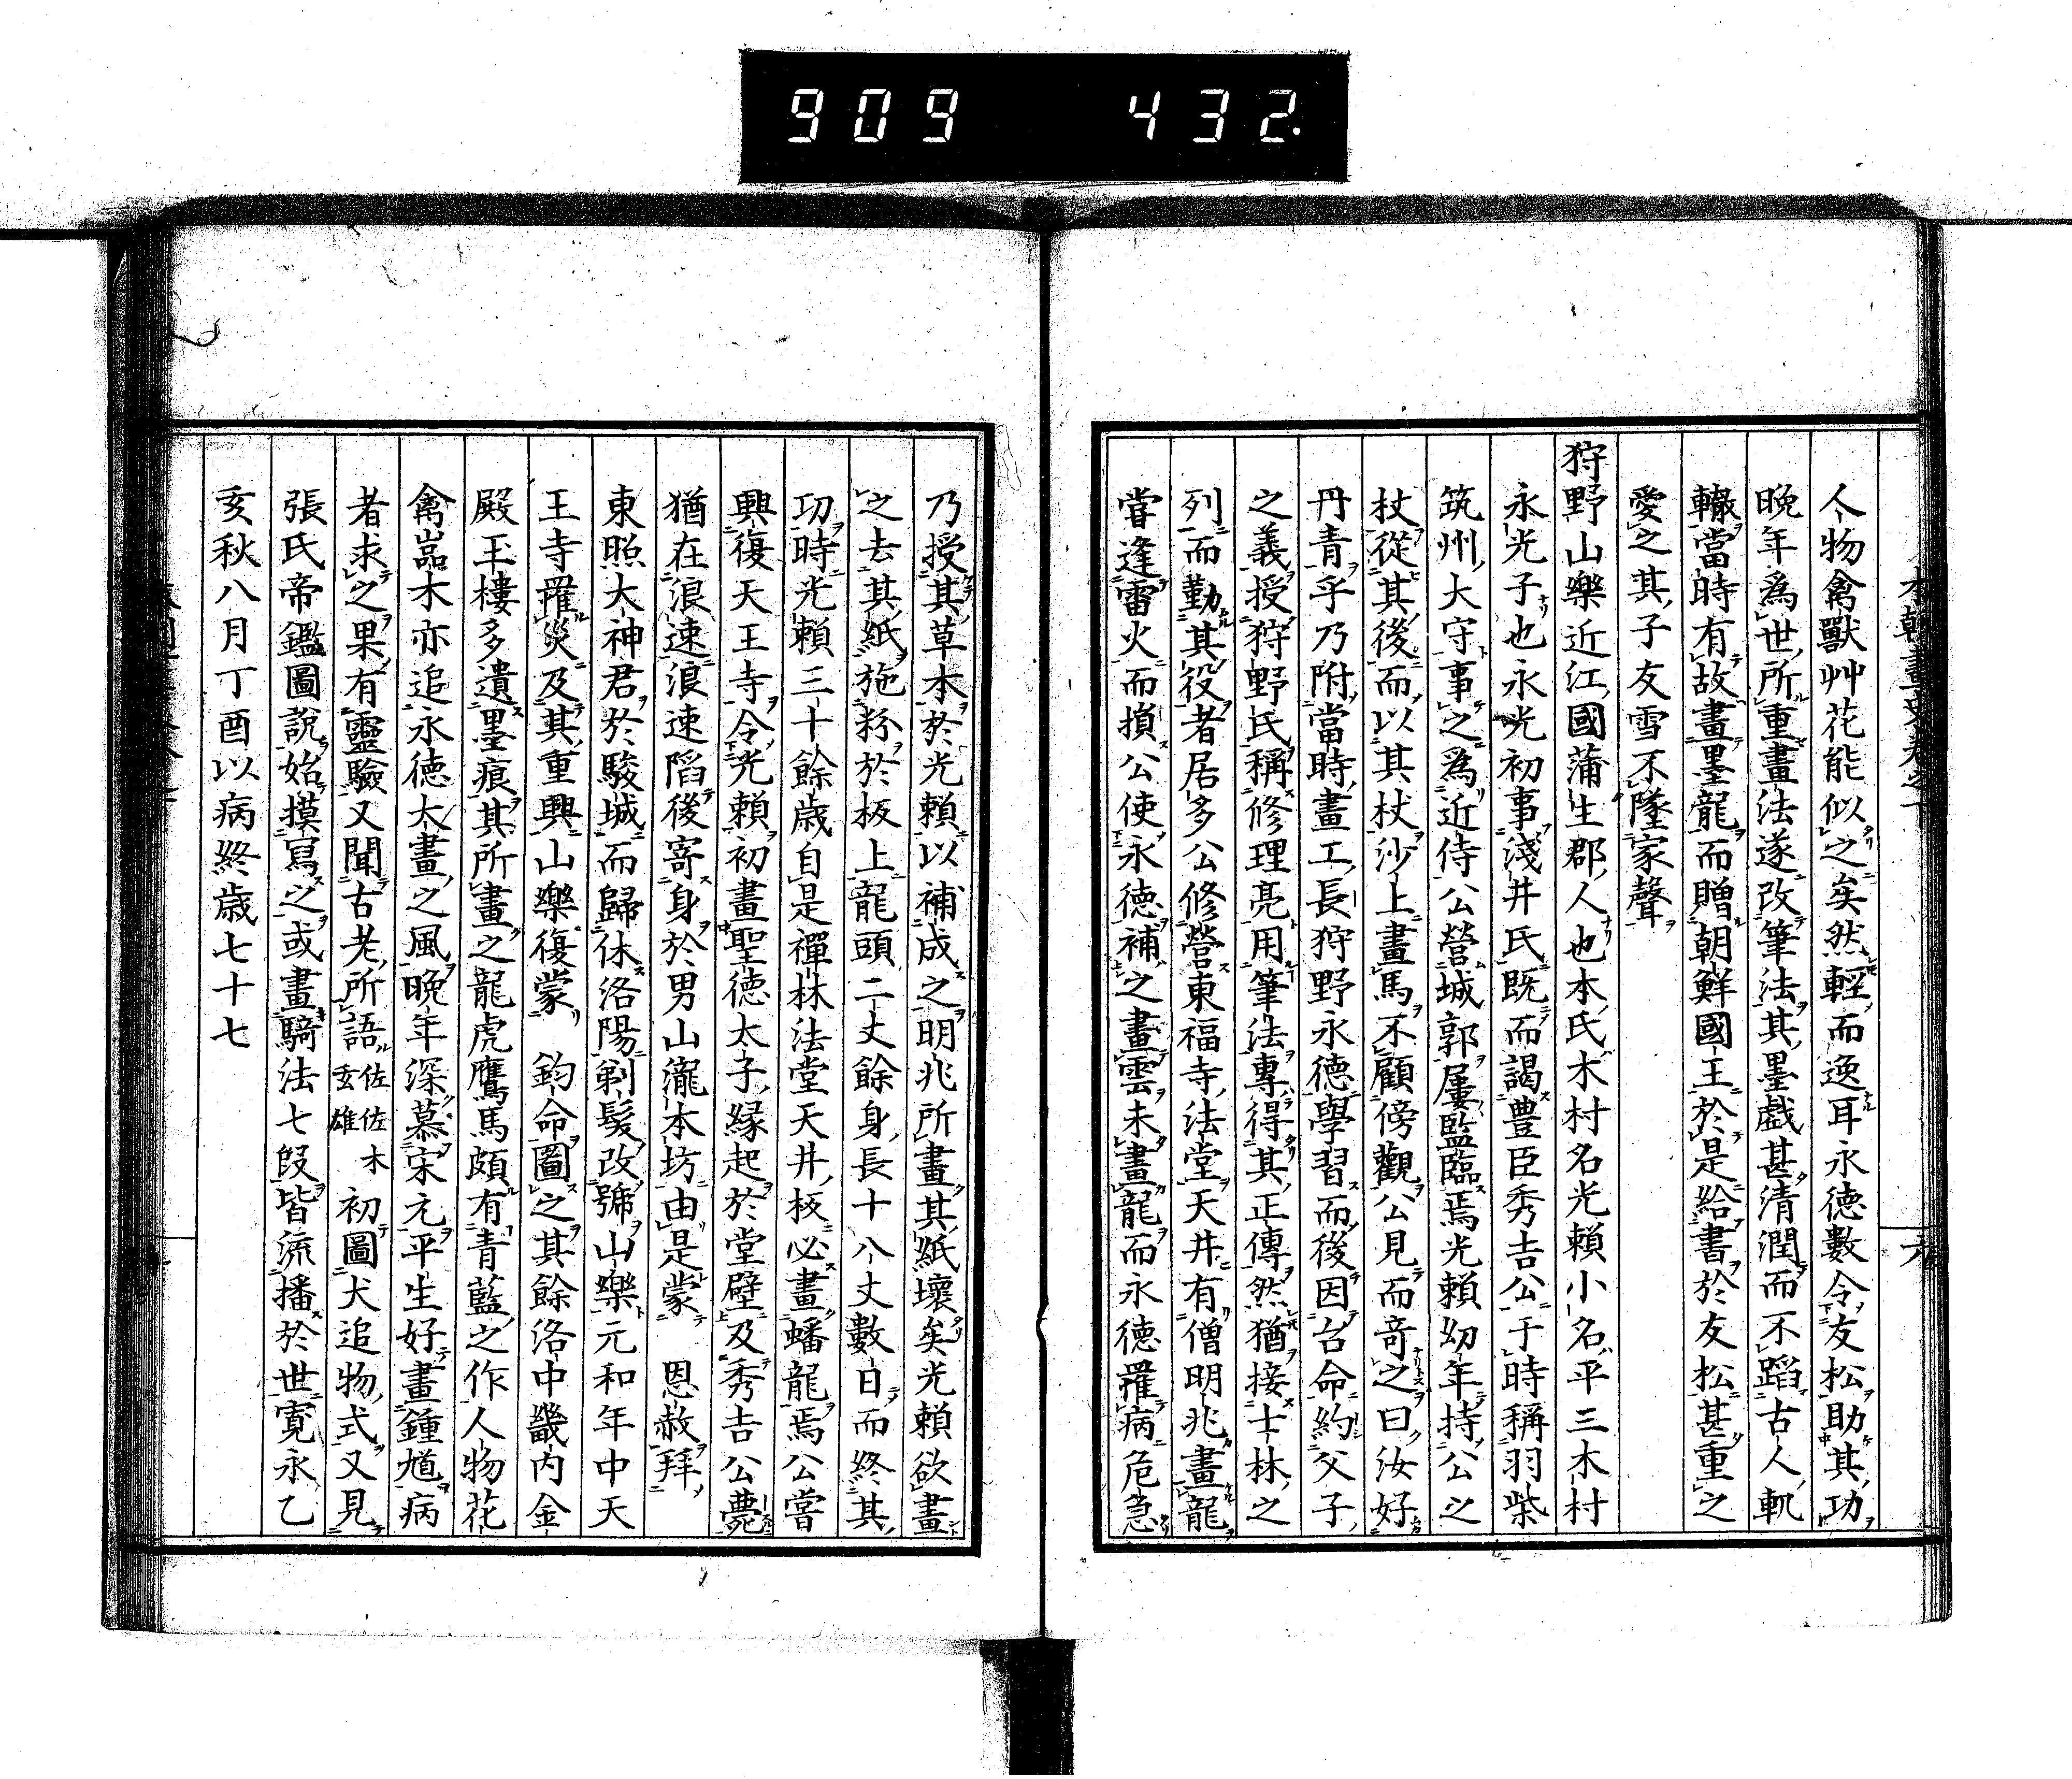 909 432.
人物禽獸艸花能似之矣然輕而逸耳永德數令友松助其功
晚年爲世所重畫法遂改筆法其墨戲甚清潤而不蹈古人軌
轍當時有故畫墨龍而贈朝鮮國王於是給書於友松甚重之
愛之其子友雪不墜家聲
狩野山樂近江國蒲生郡人也本氏木村名光賴小名平三木村
永光子也永光初事淺井氏既而謁豊臣秀吉公于時稱羽柴
筑州大守事之爲近侍公營城郭屢監臨焉光賴幼年持公之
杖從其後而以其杖沙上畫馬不顧傍觀公見而竒之曰汝好
丹青乎乃附當時畫工長狩野永德學習而後因台命約父子
之義授狩野氏稱修理亮用筆法專得其正傳然猶接士林之
列而勤其役者居多公修營東福寺法堂天井有僧明兆畫龍
甞逢雷火而損公使永德補之畫雲未畫龍而永德罹病危急
乃授其草本於光賴以補成之明兆所畫其紙壞矣光賴欲畫
之去其紙施粉於板上龍頭二丈餘身長十八丈數日而終其
功時光賴三十餘歲自是禪林法堂天井板必畫蟠龍焉公甞
興復天王寺令光賴初畫聖德太子緣起於堂壁及秀吉公薨
猶在浪速浪速陷後寄身於男山瀧本坊由是蒙 恩赦拜
東照大神君於駿城而歸休洛陽剃髮改號山樂元和年中天
王寺罹災及其重興山樂復蒙 鈞命圖之其餘洛中畿內金
殿玉樓多遺墨痕其所畫之龍虎鷹馬頗有青藍之作人物花
禽嵓木亦追永德大畫之風晚年深慕宋元平生好畫鍾馗病
者求之果有靈驗又聞古老所語佐佐木玄雄初圖犬追物式又見
張氏帝鑑圖說始摸寫之或畫騎法七段皆流播於世寬永乙
亥秋八月丁酉以病終歲七十七